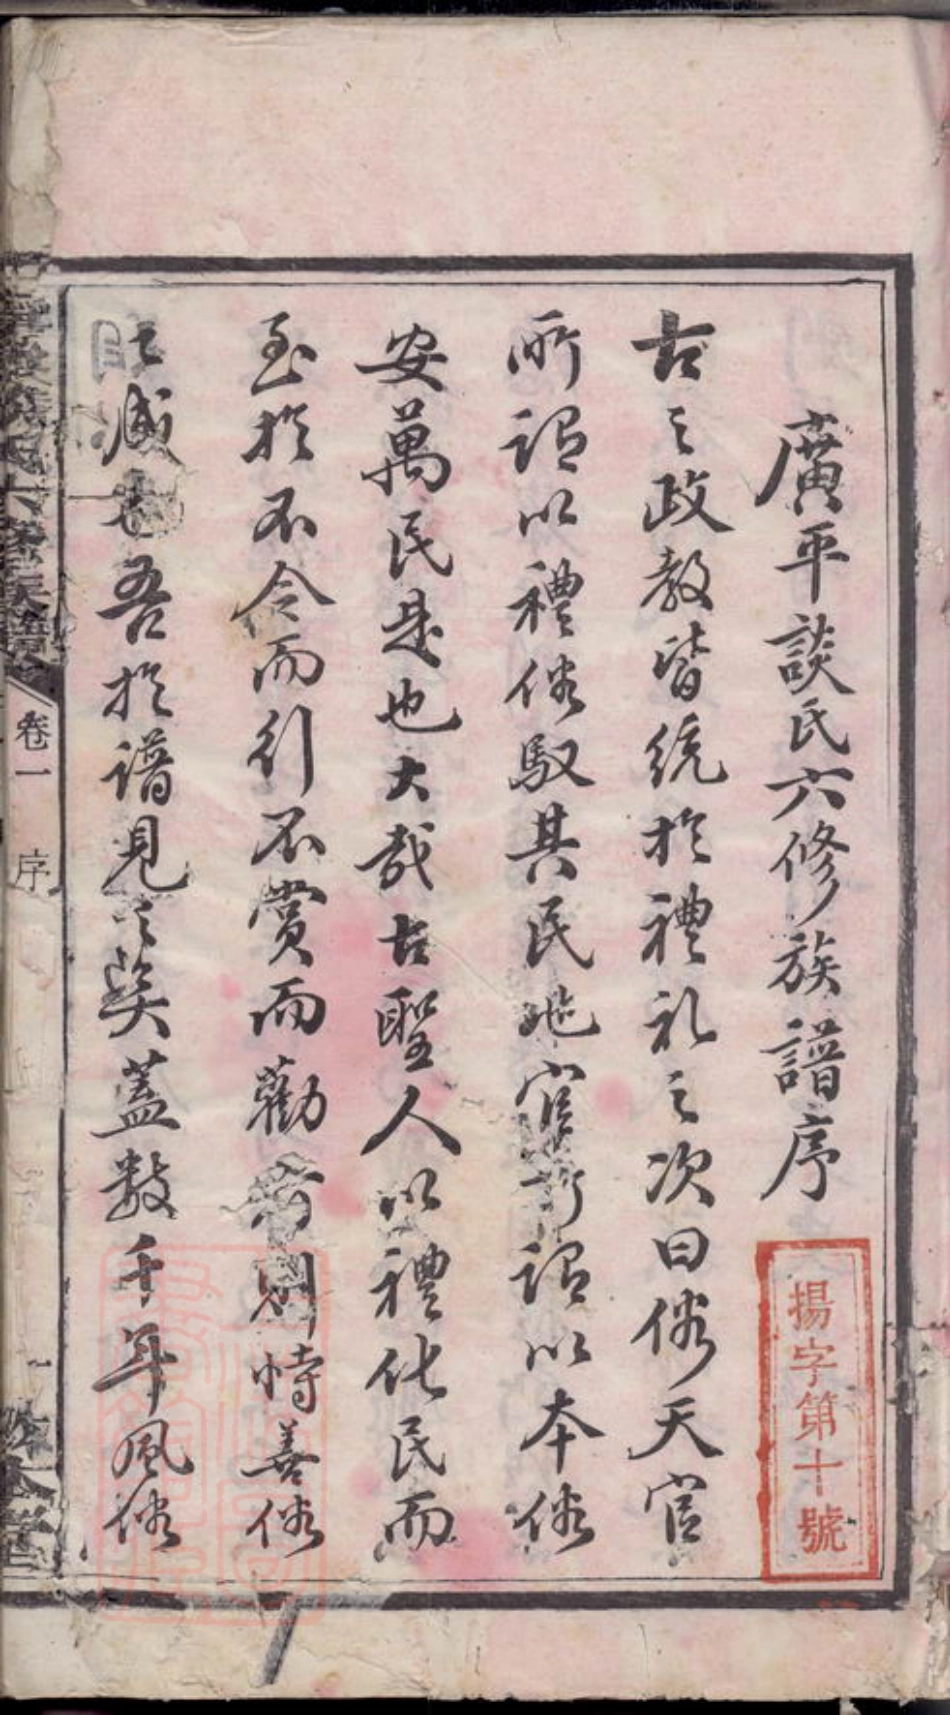 廣平談氏六修族譜序
古之政教皆統於禮礼之次曰俗天官
所謂以禮俗馭其民地官所謂以本俗
安萬民是也大哉古聖人以禮化民而
至於不令而行不賞而勸者則恃善俗
之減也吾於譜見之矣蓋數千年風俗
揚字第十號
六修族譜
卷一
序